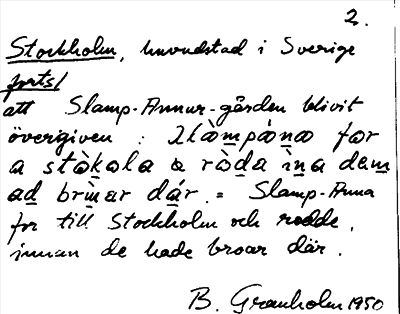 2.
Stockholm, huvudstad i Sverige
forts/
att Slamp-Annur-gården blivit
övergiven : Slàmpànɑ fɑr
a stɑ̀kɑlɑ ɑ rò̀dɑ ìnɑ dem
ad brùɑr dár. = Slamp-Anna
for till Stockholm och rodde,
innan de hade broar där.
B. Granholm 1950